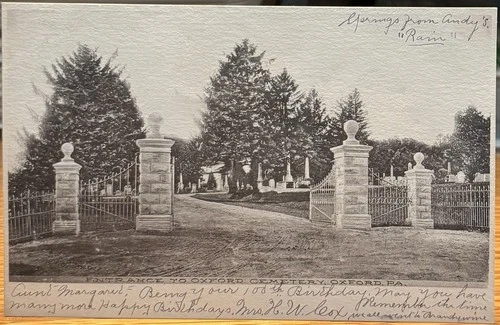 Springs from Andy's.
"Rain"
ANCE TO OXFORD CEMETERY, OXFORD, PA.
Aunt Margaret - Being your 100th Birthday, May you have
many more Happy Birthdays, Mrs. H. W. Cox. Remember the time
we all went to Chandywine